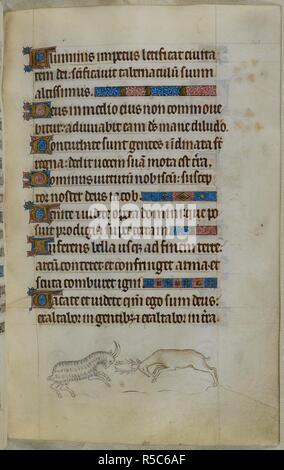 Fluminis impetus letificat ciuita
tem dei: scificauit tabernaculũ suum
altissimus.
Deus in medio eius non commoue
bitur: adiuuabit eam dẽ mane diluclo.
Conturbate sunt gentes ⁊ ĩclinata sũt
regna: dedit uocem suã mota est t̃ra.
Dominus uirtutũ nobiscũ: suscep
tor noster deus iacob.
Uenite ⁊ uidete opera domini: que po
suit prodigia super terram
Auferens bella usq; ad finem terre
arcũ conteret et confringet arma et
scuta comburet igni
Uacate et uidete qm̃ ego sum deus:
exaltabor in gentib; et exaltabor in t̃ra.